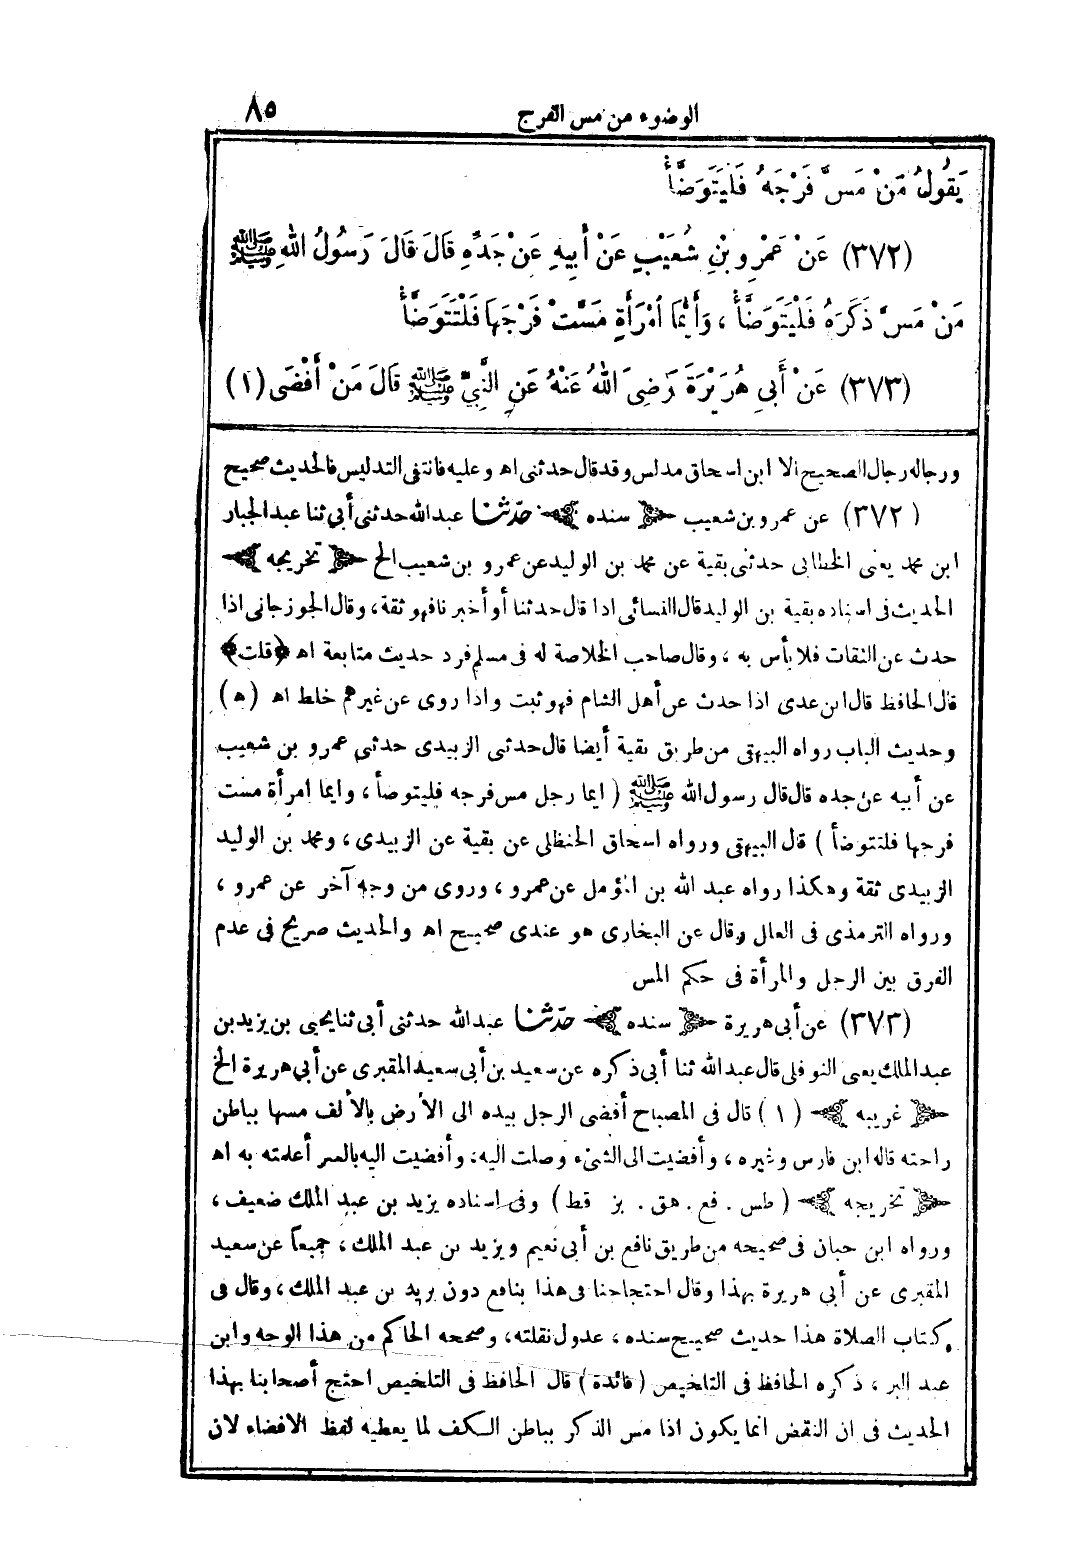 الوضوء من مس الفرج ٨٥
يَقُولُ مَنْ مَسَّ فَرْجَهُ فَلْيَتَوَضَّأْ
(٣٧٢) عَنْ عَمْرِو بْنِ شُعَيْبٍ عَنْ أَبِيهِ عَنْ جَدِّهِ قَالَ قَالَ رَسُولُ اللهِ ﷺ
مَنْ مَسَّ ذَكَرَهُ فَلْيَتَوَضَّأْ ، وَأَيُّمَا امْرَأَةٍ مَسَّتْ فَرْجَهَا فَلْتَتَوَضَّأْ
(٣٧٣) عَنْ أَبِي هُرَيْرَةَ رَضِيَ اللهُ عَنْهُ عَنِ النَّبِيِّ ﷺ قَالَ مَنْ أَفْضَى (١)
ورجاله رجال الصحيح الا ابن اسحاق مدلس وقد قال حدثنى اه وعليه فانتفى التدليس فالحديث صحيح
(٣٧٢) عن عمرو بن شعيب ﴿ سنده ﴾ حدّثنا عبد الله حدثنى أبى ثنا عبد الجبار
ابن محمد يعنى الخطابى حدثنى بقية عن محمد بن الوليد عن عمرو بن شعيب الخ ﴿ تخريجه ﴾
الحديث فى اسناده بقية بن الوليد قال النسائى اذا قال حدثنا أو أخبرنا فهو ثقة ، وقال الجوزجانى اذا
حدث عن الثقات فلا بأس به ، وقال صاحب الخلاصة له فى مسلم فرد حديث متابعة اه ﴿قلت﴾
قال الحافظ قال ابن عدى اذا حدث عن أهل الشام فهو ثبت واذا روى عن غيرهم خلط اه (ه)
وحديث الباب رواه البيهقى من طريق بقية أيضا قال حدثنى الزبيدى حدثنى عمرو بن شعيب
عن أبيه عن جده قال قال رسول الله ﷺ ( ايما رجل مس فرجه فليتوضأ ، وايما امرأة مست
فرجها فلتتوضأ ) قال البيهقى ورواه اسحاق الحنظلى عن بقية عن الزبيدى ، ومحمد بن الوليد
الزبيدى ثقة وهكذا رواه عبد الله بن المؤمل عن عمرو ، وروى من وجه آخر عن عمرو ،
ورواه الترمذى فى العلل وقال عن البخارى هو عندى صحيح اه والحديث صريح فى عدم
الفرق بين الرجل والمرأة فى حكم المس
(٣٧٣) عن أبى هريرة ﴿ سنده ﴾ حدّثنا عبد الله حدثنى أبى ثنا يحيى بن يزيد بن
عبد الملك يعنى النوفلى قال عبد الله ثنا أبى ذكره عن سعيد بن أبى سعيد المقبرى عن أبى هريرة الخ
﴿ غريبه ﴾ (١) قال فى المصباح أفضى الرجل بيده الى الأرض بالألف مسها بباطن
راحته قاله ابن فارس وغيره ، وأفضيت الى الشىء وصلت اليه، وأفضيت اليه بالسر أعلمته به اه
﴿ تخريجه ﴾ ( طس . فع . هق . بز قط ) وفى اسناده يزيد بن عبد الملك ضعيف ،
ورواه ابن حبان فى صحيحه من طريق نافع بن أبى نعيم ويزيد بن عبد الملك ، جميعاً عن سعيد
المقبرى عن أبى هريرة بهذا وقال احتجاجنا فى هذا بنافع دون يزيد بن عبد الملك ، وقال فى
كتاب الصلاة هذا حديث صحيح سنده ، عدول نقلته، وصححه الحاكم من هذا الوجه وابن
عبد البر ، ذكره الحافظ فى التلخيص ( فائدة ) قال الحافظ فى التلخيص احتج أصحابنا بهذا
الحديث فى ان النقض انما يكون اذا مس الذكر بباطن الكف لما يعطيه لفظ الافضاء لان